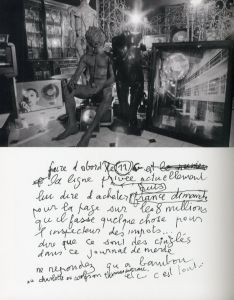 faire d'abord 11 et
la ligne privée actuellement
leur dire d'acheter france dimanche
pour la page sur les 8 millions
qu'il fasse quelque chose pour
l'inspecteur des impots..
dire que ce sont des cinglés
dans ce journal de merde
ne repondez qu'a bambou
etc c'est tout..